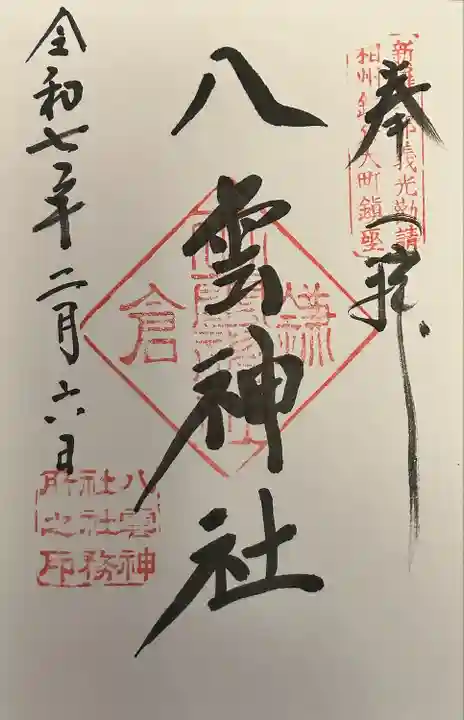 新羅三郎義光勧請
相州鎌倉大町鎮座
奉拝
八雲神社
鎌倉
令和七年二月六日
八雲神
社社務
所之印